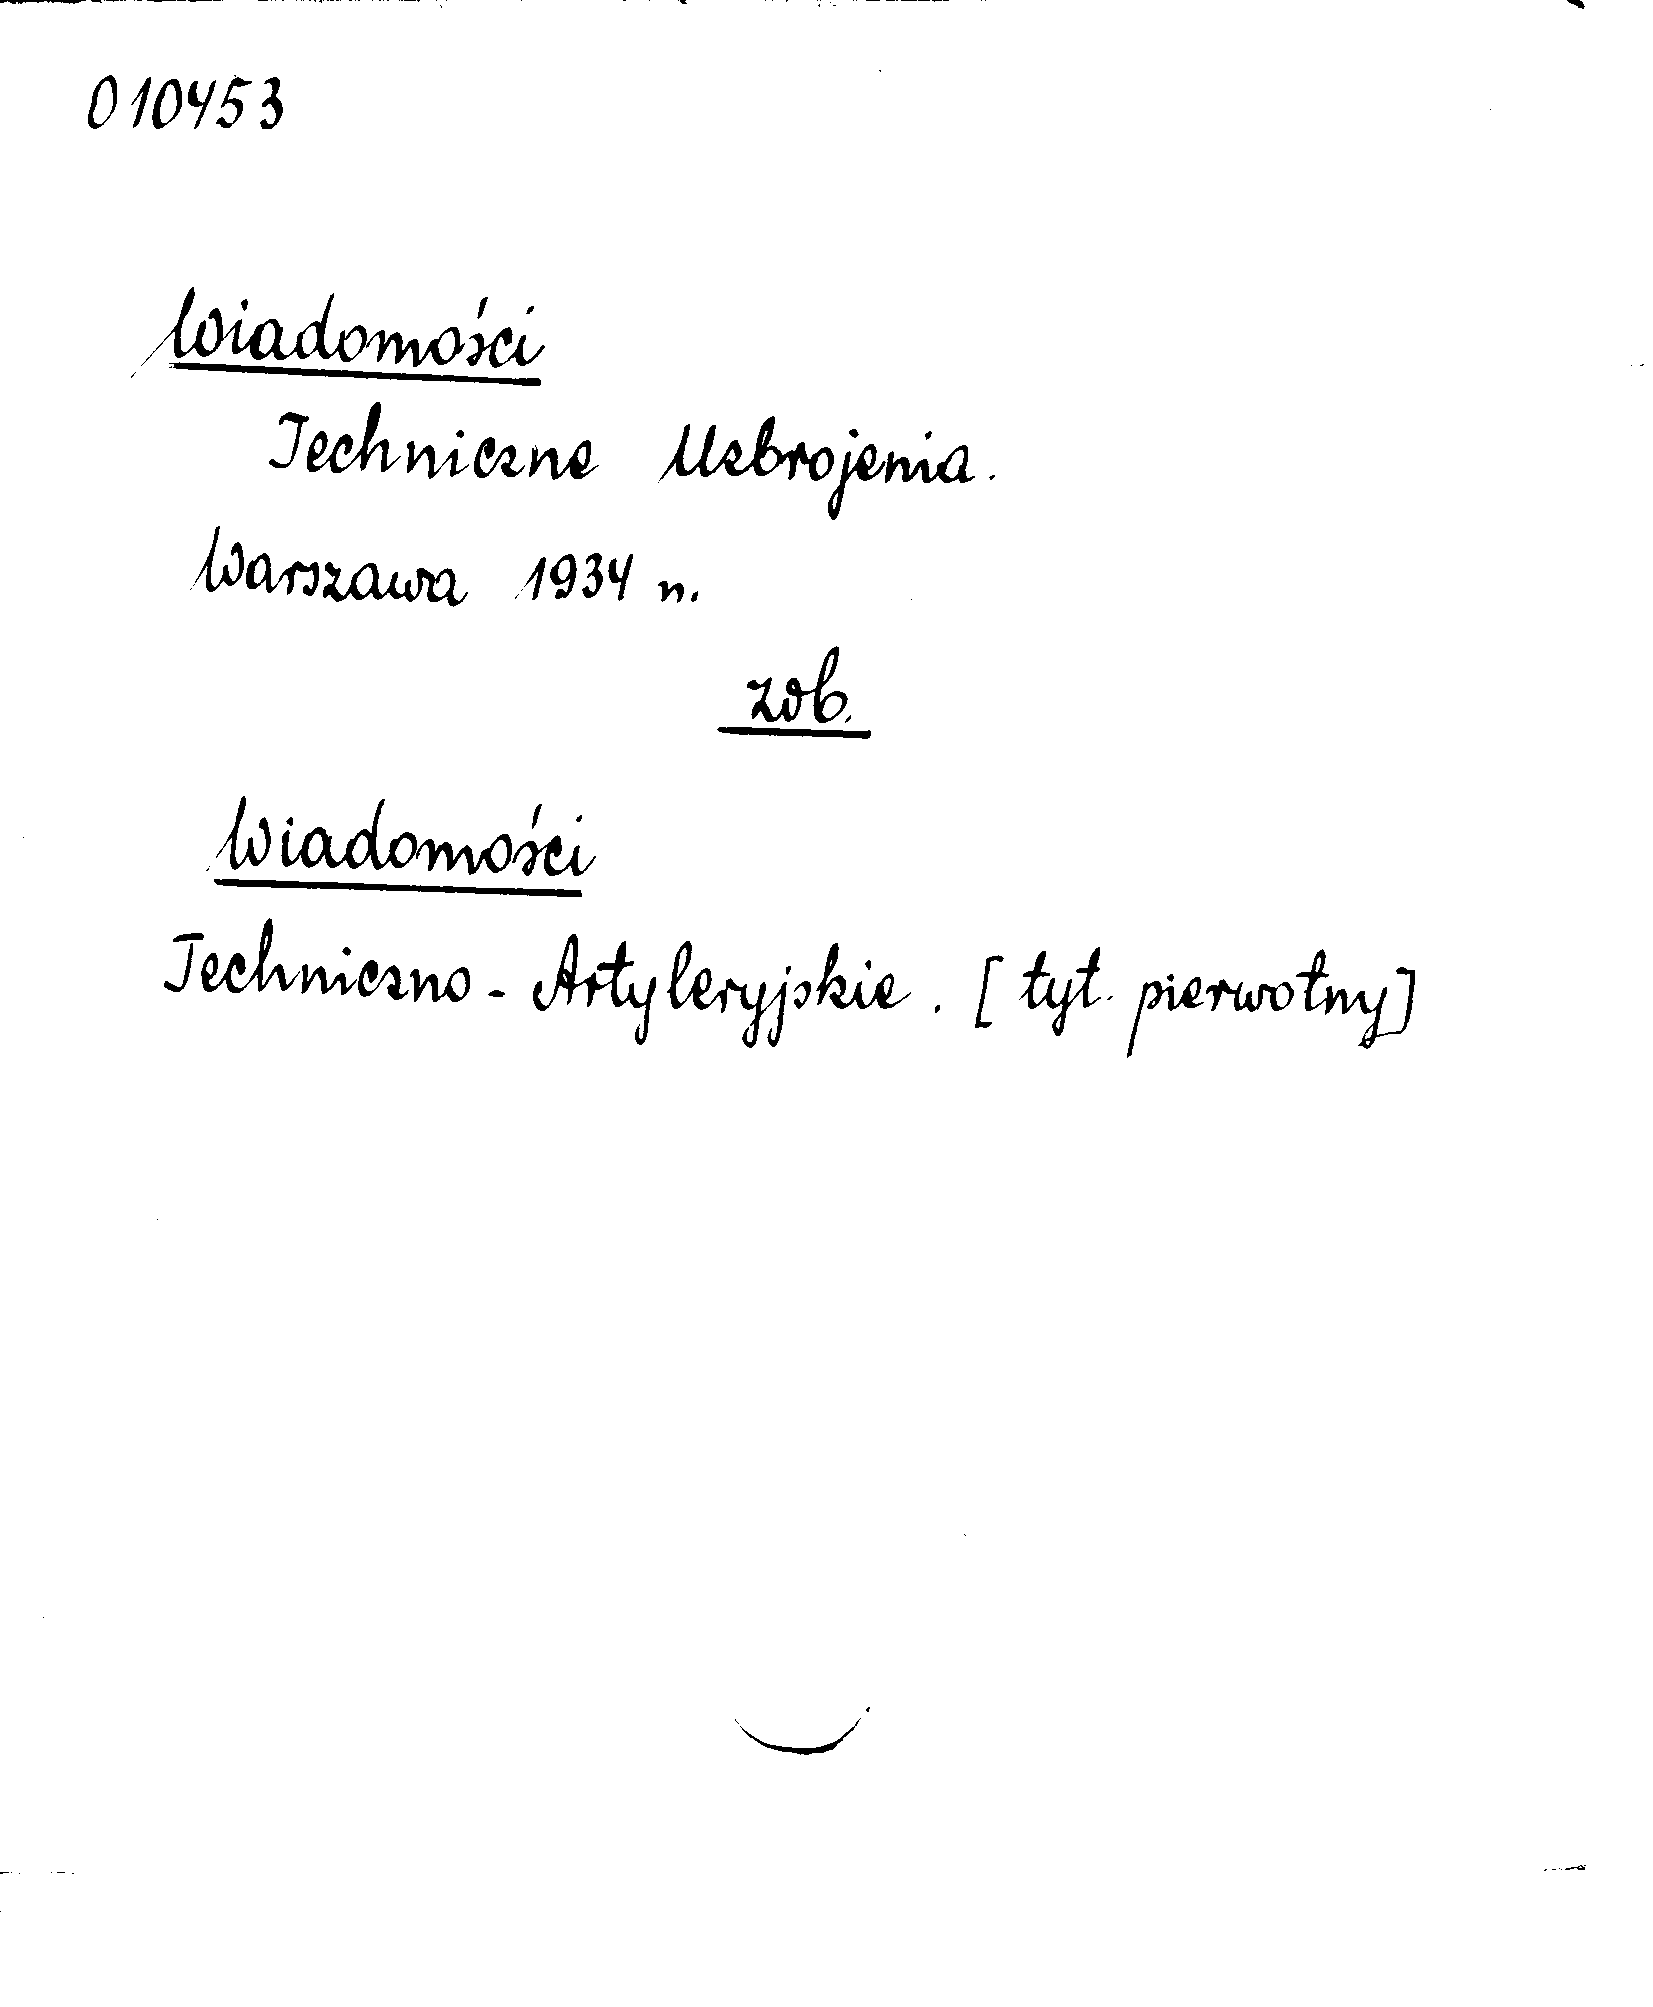 010453
Wiadomości
Techniczne Uzbrojenia.
Warszawa 1934 n.
zob.
Wiadomości
Techniczno - Artyleryjskie. [tyt. pierwotny]